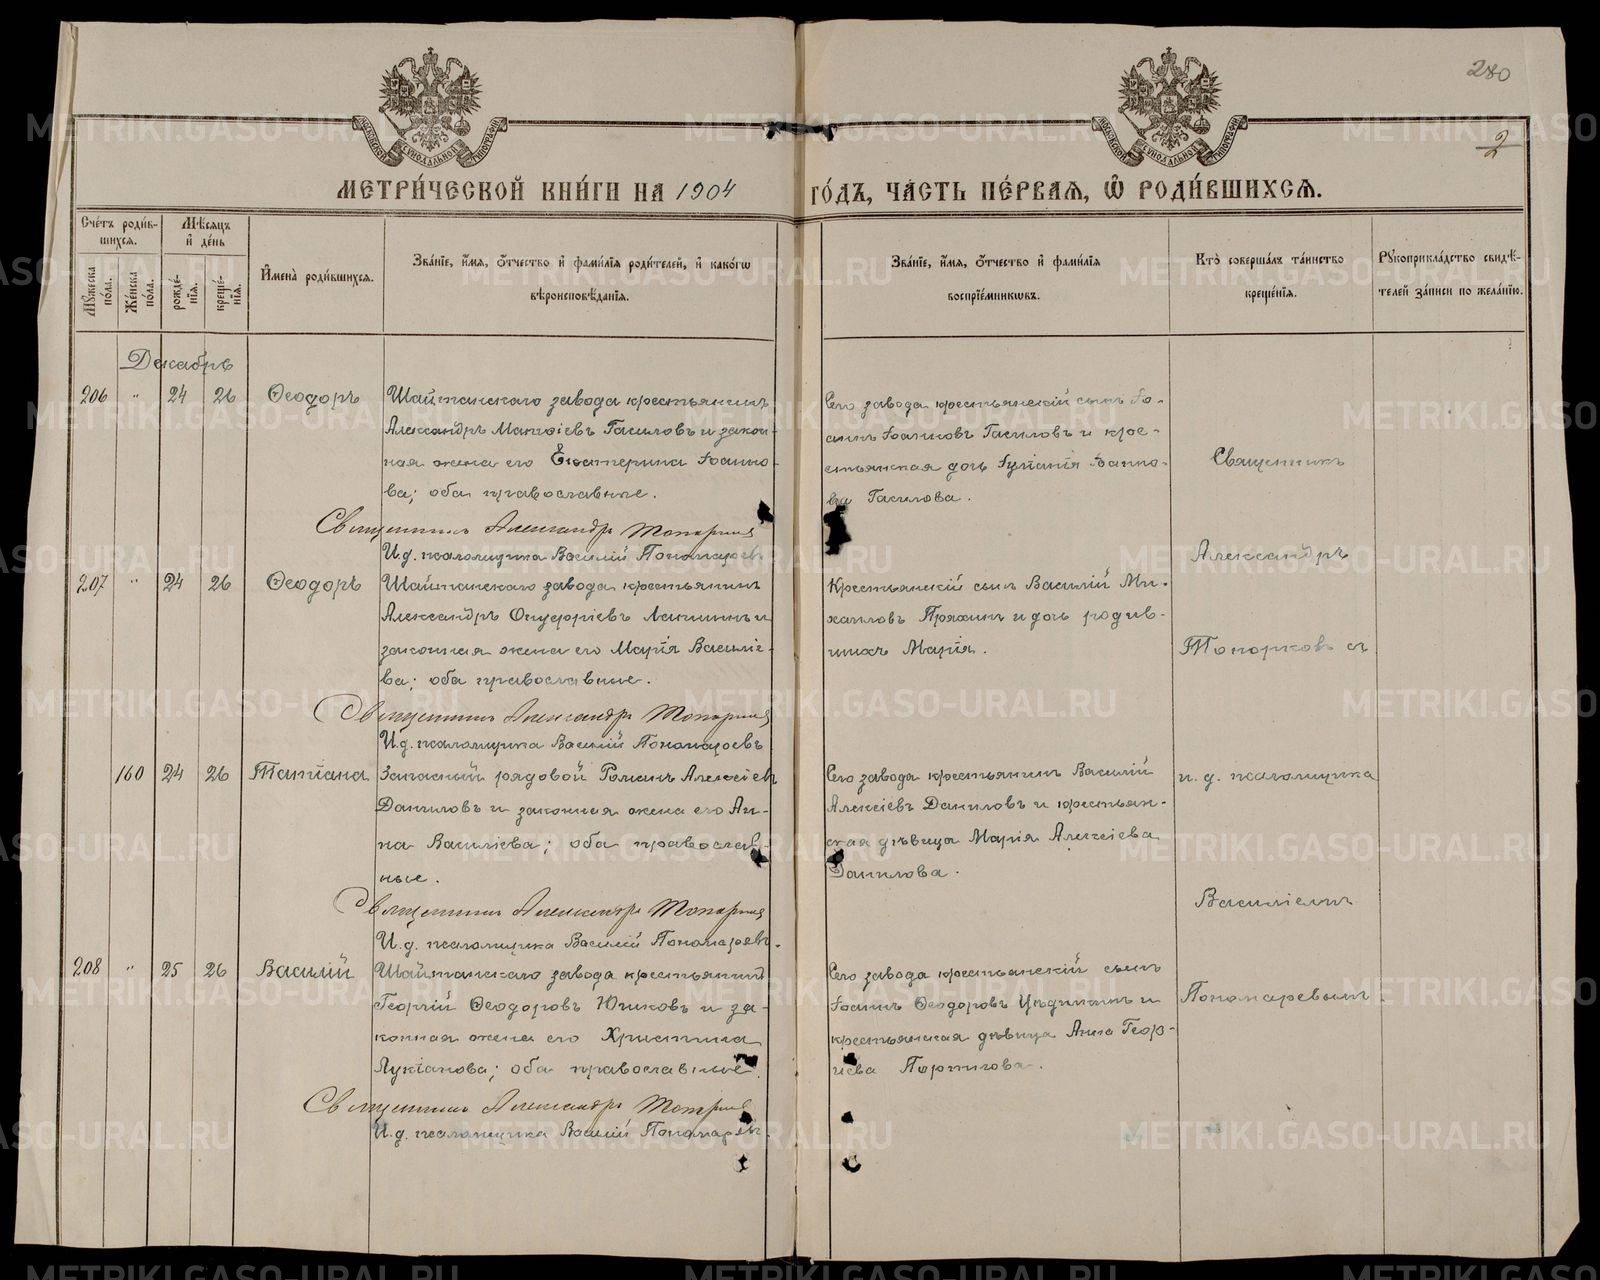 280
2
МЕТРИ́ЧЕСКОЙ КНИ́ГИ НА 1904 ГО́ДЪ, ЧА́СТЬ ПЕ́РВАЯ, Ѡ РОДИ́ВШИХСЯ.
Счéтъ роди́в-
шихся.
Мѣ́сяцъ
и́ де́нь
Мꙋ́жеска
по́ла.
Же́нска
по́ла.
рожде́-
нїя.
креще́-
нїя.
И҆мена̀ роди́вшихся.
Зва́нїе, и҆́мя, ѻ҆́тчество и҆ фами́лїя роди́телей, и҆ како́гѡ
вѣроисповѣ́данїя.
Зва́нїе, и҆́мя, ѻ҆́тчество и҆ фами́лїя
воспрїе́мникѡвъ.
Кто̀ соверша́лъ та́инство
креще́нїя.
Рꙋкоприкла́дство свидѣ́-
телей за́писи по жела́нїю.
Декабрь
206 " 24 26 Ѳеодоръ
Шайтанскаго завода крестьянинъ
Александръ Матѳіевъ Гасиловъ и закон-
ная жена его Екатерина Іоанно-
ва; оба православные.
Священникъ Александръ Топорковъ
И.д. псаломщика Василій Пономаревъ
Сего завода крестьянскій сынъ Іо-
аннъ Іоанновъ Гасиловъ и кре-
стьянская дочь Іуліанія Іоанно-
ва Гасилова.
207 " 24 26 Ѳеодоръ
Шайтанскаго завода крестьянинъ
Александръ Онуфріевъ и
законная жена его Марія Василіе-
ва; оба православные.
Священникъ Александръ Топорковъ
И.д. псаломщика Василій Пономаревъ
Крестьянскій сынъ Василій Ми-
хаиловъ Пряхинъ и дочь родив-
шихъ Марія.
160 24 26 Татіана
Запасный рядовой Романъ Алексіевъ
Даниловъ и законная жена его Ан-
на Василіева; оба православ-
ные.
Священникъ Александръ Топорковъ
И.д. псаломщика Василій Пономаревъ.
Сего завода крестьянинъ Василій
Алексіевъ Даниловъ и крестьян-
ская дѣвица Марія Алексіева
Данилова.
208 " 25 26 Василій
Шайтанскаго завода крестьянинъ
Георгій Ѳеодоровъ Юшковъ и за-
конная жена его Христина
Лукіанова; оба православные.
Священникъ Александръ Топорковъ
И.д. псаломщика Василій Пономаревъ.
Сего завода крестьянскій сынъ
Іоаннъ Ѳеодоровъ и
крестьянская дѣвица Анна Геор-
гіева
Священникъ
Александръ
Топорковъ съ
и.д. псаломщика
Василіемъ
Пономаревымъ
METRIKI.GASO-URAL.RU